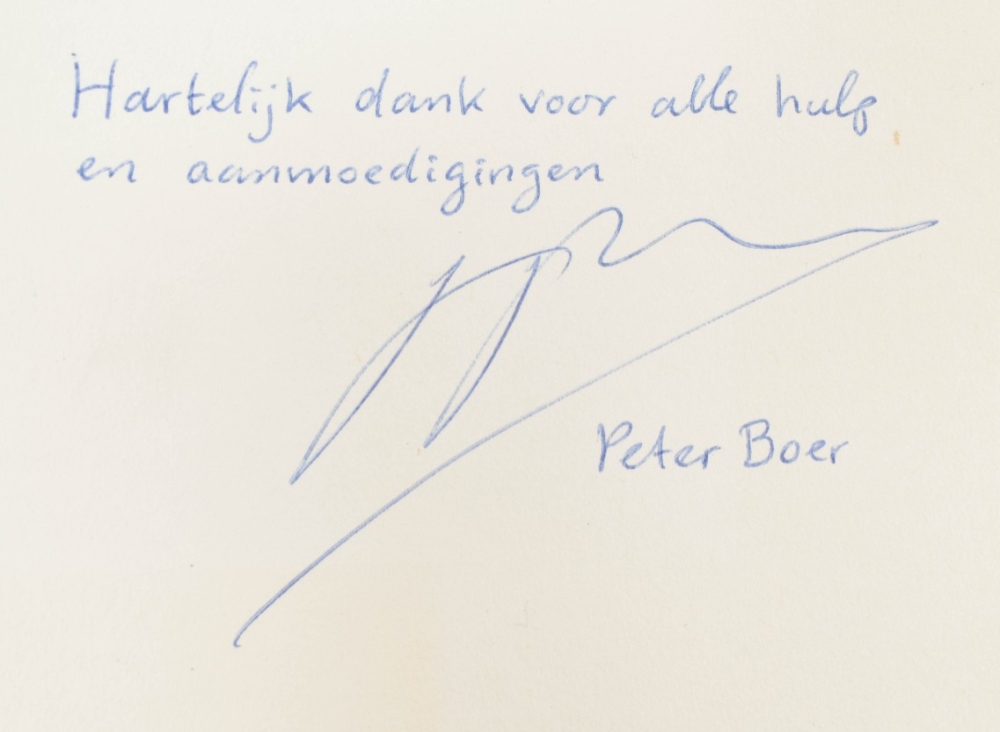 Hartelijk dank voor alle hulp
en aanmoedigingen
Peter Boer